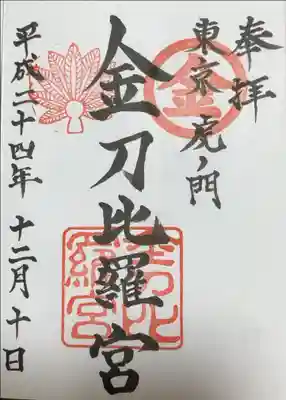 奉拝
東京虎ノ門
金
金刀比羅宮
金刀比羅宮
平成二十四年 十二月十日